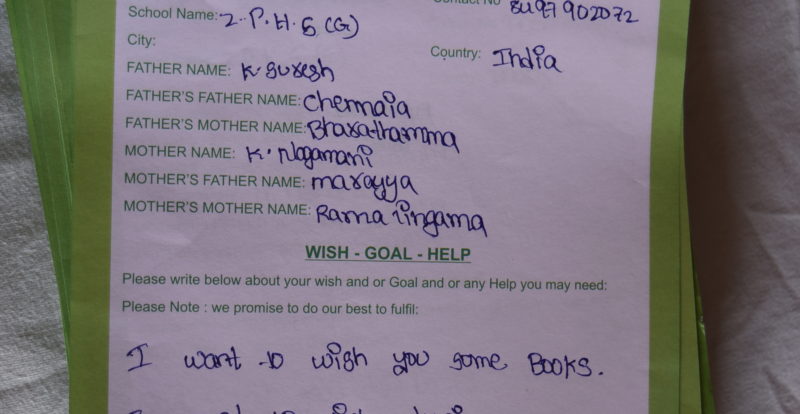 School Name: Z.P.H.S (G)
8497902072
City:
Country: India
FATHER NAME: K. Suresh
FATHER'S FATHER NAME: Chennaia
FATHER'S MOTHER NAME: Bharathamma
MOTHER NAME: K. Nagamani
MOTHER'S FATHER NAME: marayya
MOTHER'S MOTHER NAME: Rama lingama
WISH - GOAL - HELP
Please write below about your wish and or Goal and or any Help you may need:
Please Note : we promise to do our best to fulfil:
I want to wish you some Books.